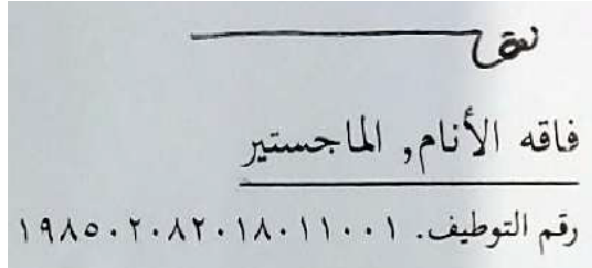 فاقه الأنام, الماجستير
رقم التوطيف. ١٩٨٥٠٢٠٨٢٠١٨٠١١٠٠١